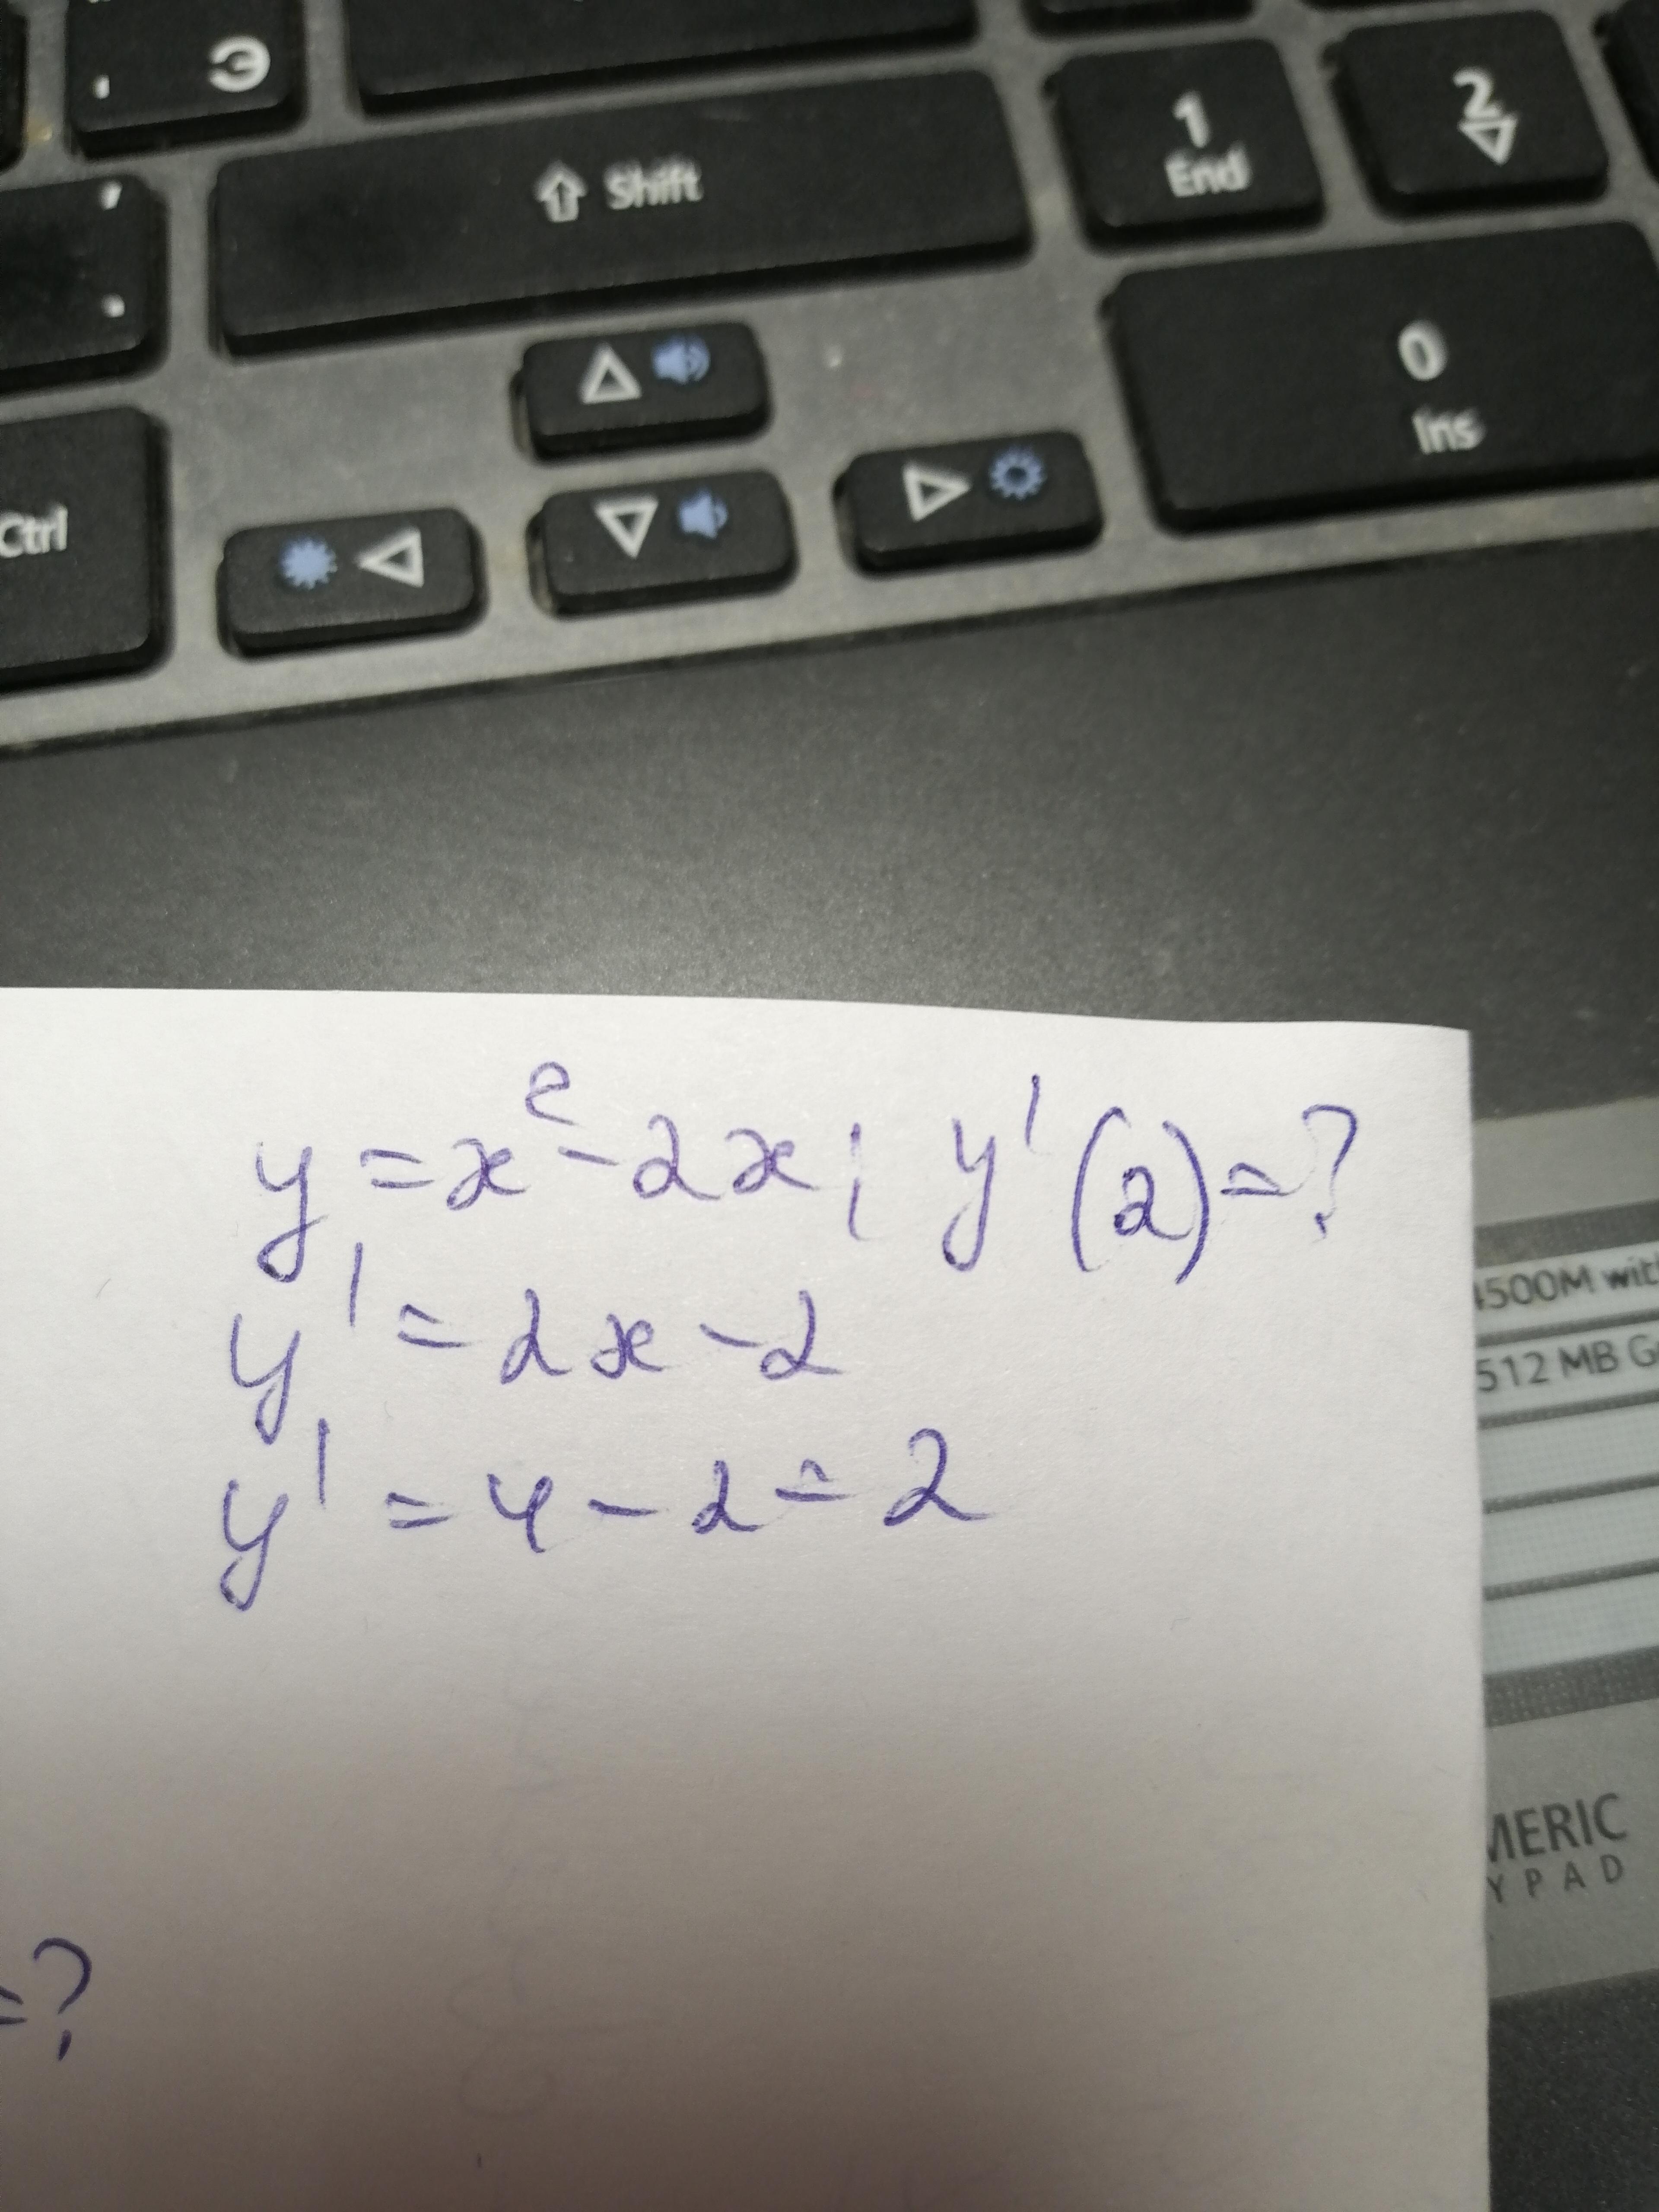 Э
Shift
1
End
2
0
Ins
Ctrl
y = x² - 2x; y'(2) = ?
y' = 2x - 2
y' = 4 - 2 = 2
4500M with
512 MB G
MERIC
YPAD
=?